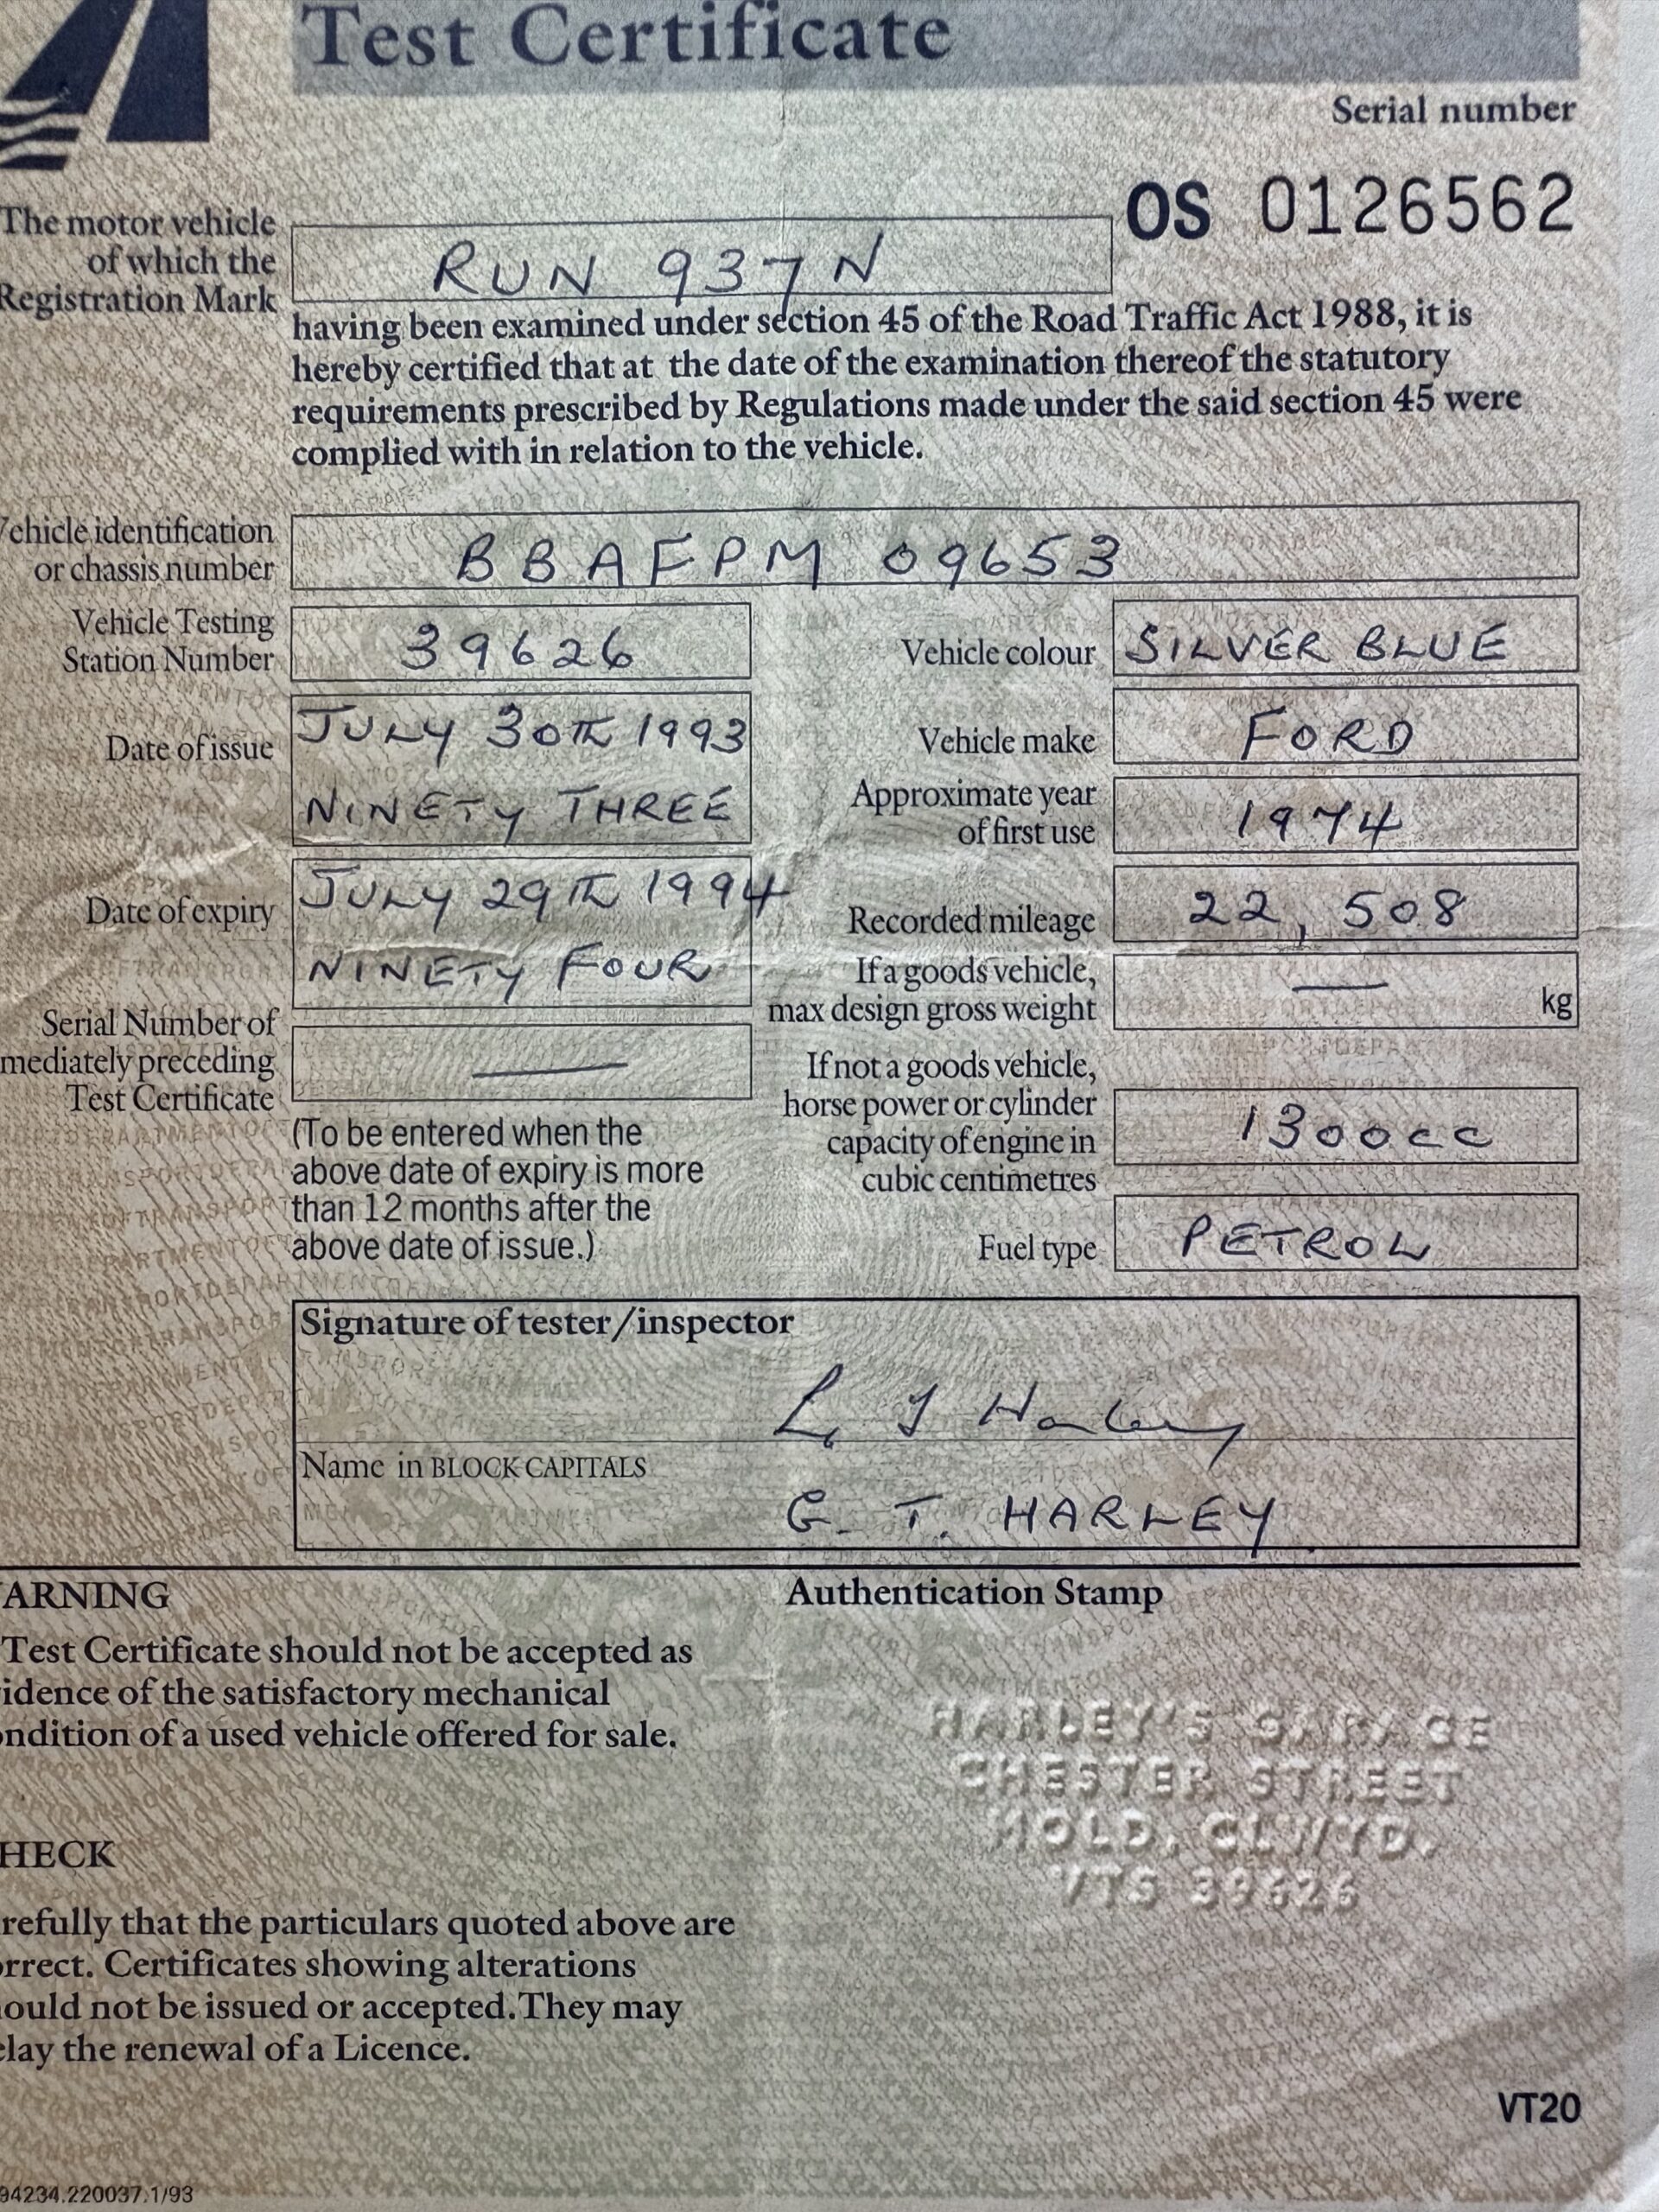 Test Certificate
Serial number
OS 0126562
The motor vehicle
of which the
Registration Mark
RUN 937N
having been examined under section 45 of the Road Traffic Act 1988, it is
hereby certified that at the date of the examination thereof the statutory
requirements prescribed by Regulations made under the said section 45 were
complied with in relation to the vehicle.
Vehicle identification
or chassis number
BBAFPM 09653
Vehicle Testing
Station Number
39626
Vehicle colour
SILVER BLUE
Date of issue
JULY 30TH 1993
NINETY THREE
Vehicle make
FORD
Approximate year
of first use
1974
Date of expiry
JULY 29TH 1994
NINETY FOUR
Recorded mileage
22,508
If a goods vehicle,
max design gross weight
— kg
Serial Number of
mediately preceding
Test Certificate
—
(To be entered when the
above date of expiry is more
than 12 months after the
above date of issue.)
If not a goods vehicle,
horse power or cylinder
capacity of engine in
cubic centimetres
1300cc
Fuel type
PETROL
Signature of tester/inspector
G T Harley
Name in BLOCK CAPITALS
G. T. HARLEY
ARNING
Test Certificate should not be accepted as
idence of the satisfactory mechanical
ondition of a used vehicle offered for sale.
HECK
refully that the particulars quoted above are
orrect. Certificates showing alterations
ould not be issued or accepted. They may
elay the renewal of a Licence.
Authentication Stamp
HARLEY'S GARAGE
CHESTER STREET
MOLD, CLWYD.
VTS 39626
VT20
94234.220037.1/93